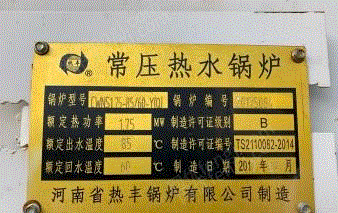 ®
常压热水锅炉
锅炉型号 CWNS1.75-85/60-YQ 锅炉编号
额定热功率 1.75 MW 制造许可证级别 B
额定出水温度 85 ℃ 制造许可证编号 TS2110082-2014
额定回水温度 60 ℃ 201 年 月
河南省热丰锅炉有限公司制造